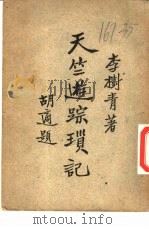 161-35
李樹青著
天竺遊踪瑣記
胡適題